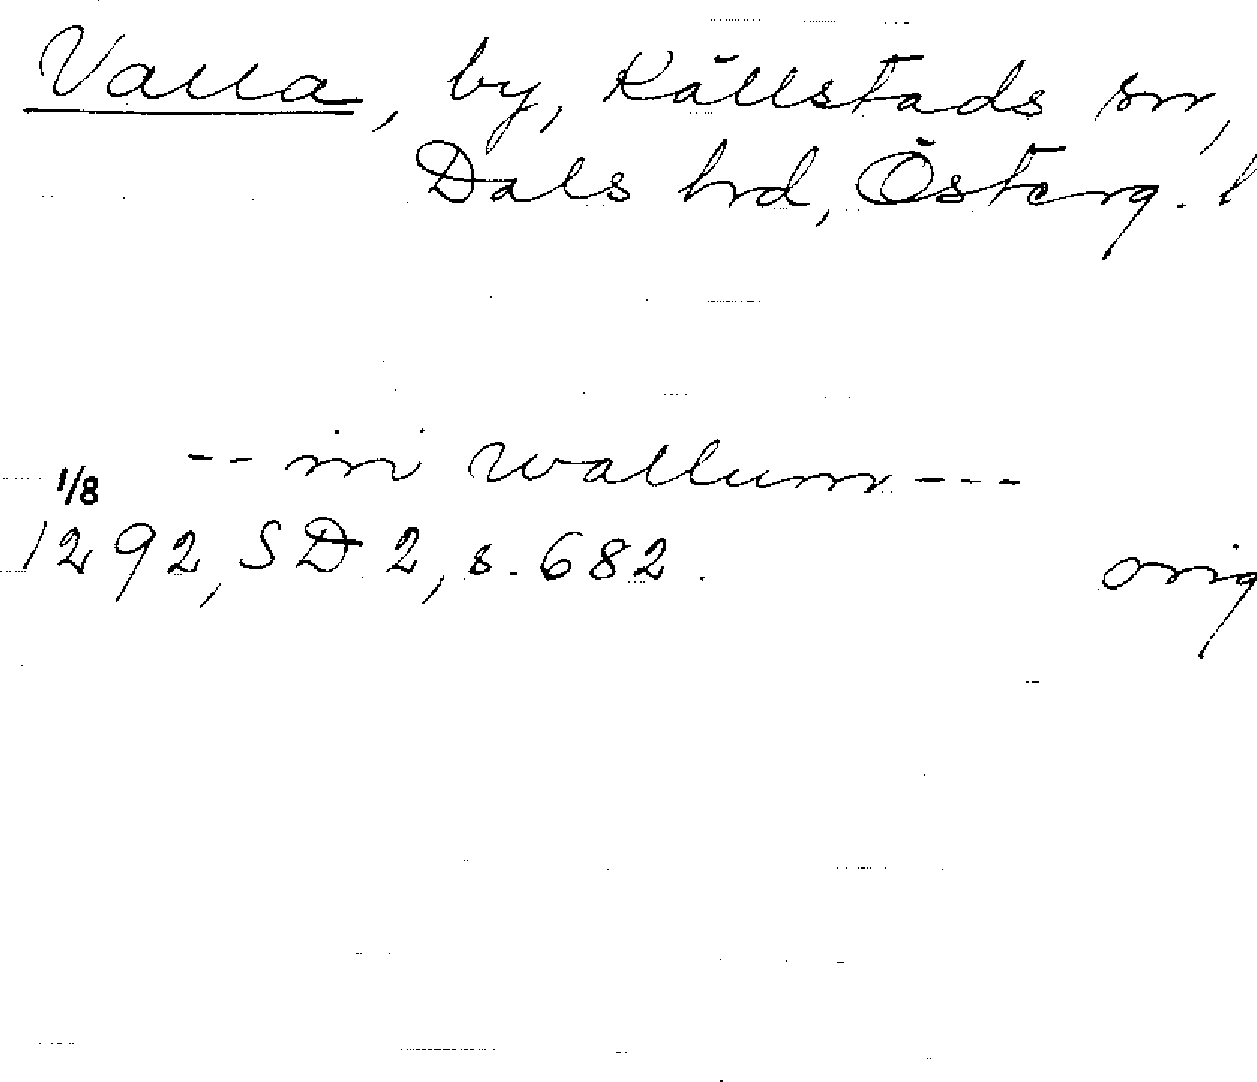 Valla, by, Källstads sn,
Dals hrd, Österg. l
-- in wallum ---
1/8
1292, SD 2, s. 682. orig